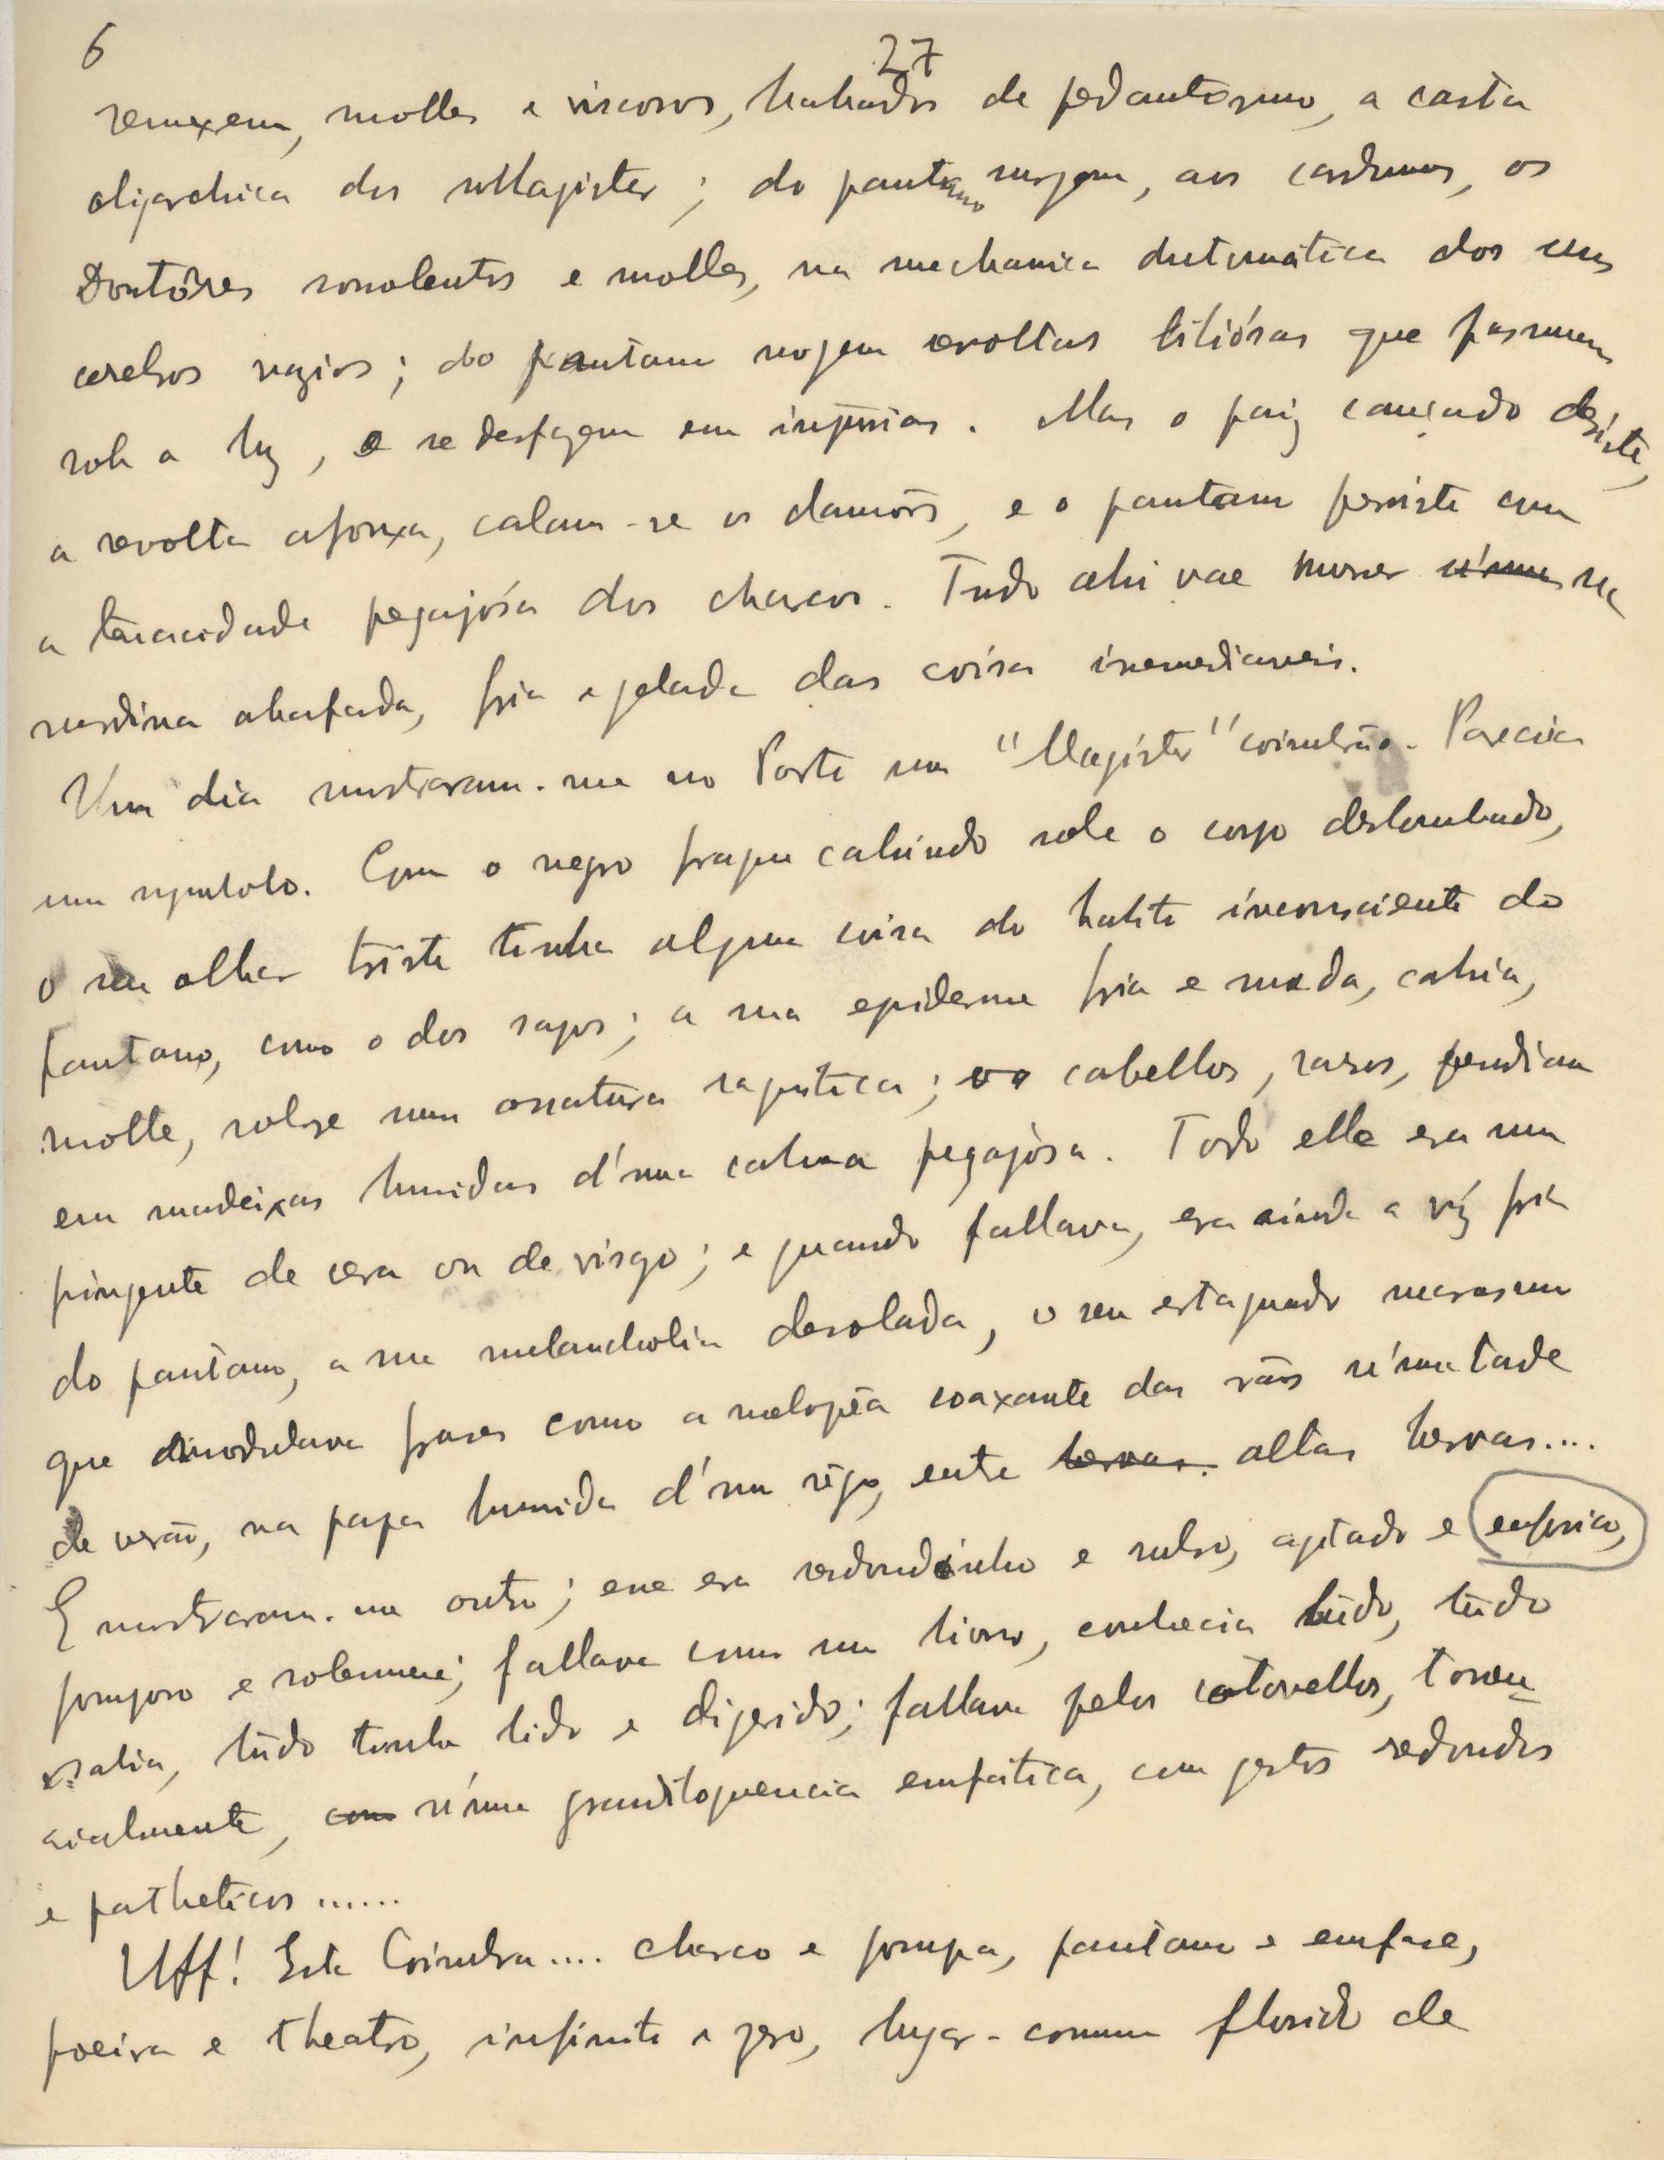 6
27
remexem, molles e viscosos, babados de pedantismo, a casta
oligarchica dos Magister; do pantano surgem, aos cardumes, os
Doutôres sonolentos e molles, na mechanica automática dos seus
cerebros vazios; do pantano surgem revoltas biliósas que pasmam
sob a luz, e se desfazem em injurias. Mas o paiz cançado desiste,
a revolta afrouxa, calam-se os clamôrs, e o pantano persiste com
a tenacidade pegajósa dos charcos. Tudo ahi vae morrer n'uma na
surdina abafada, fria e gelada das coisa irremediaveis.
Um dia mostraram-me no Porto um "Magister" coimbrão. Parecia
um symbolo. Com o negro fraque cahindo sobre o corpo deslombado,
o seu olhar triste tinha alguma coisa do halito inconsciente do
pantano, como o dos sapos; a sua epiderme fria e muda, cahia,
molle, sobre uma ossatura raquitica; os cabellos, raros, pendiam
em madeixas humidas d'uma calma pegajósa. Todo elle era um
pingente de cera ou de visgo; e quando fallava, era ainda a vóz fria
do pantano, a sua melancholia desolada, o seu estagnado marasmo
que modulava frases como a melopêa coaxante das rãs n'uma tarde
de verão, na papa humida d'um rêgo, entre hervas. altas hervas....
E mostraram-me outro; esse era redondinho e rubro, agitado e
pomposo e solemne; fallava como um livro, conhecia tudo, tudo
sabia, tudo tinha lido e digerido; fallava pelos cotovellos, toren-
cialmente, com n'uma grandiloquencia emfatica, com gestos redondos
e patheticos......
Uff! Esta Coimbra.... charco e pompa, pantano e emfase,
poeira e theatro, infinito e zero, lugar-comum florido de